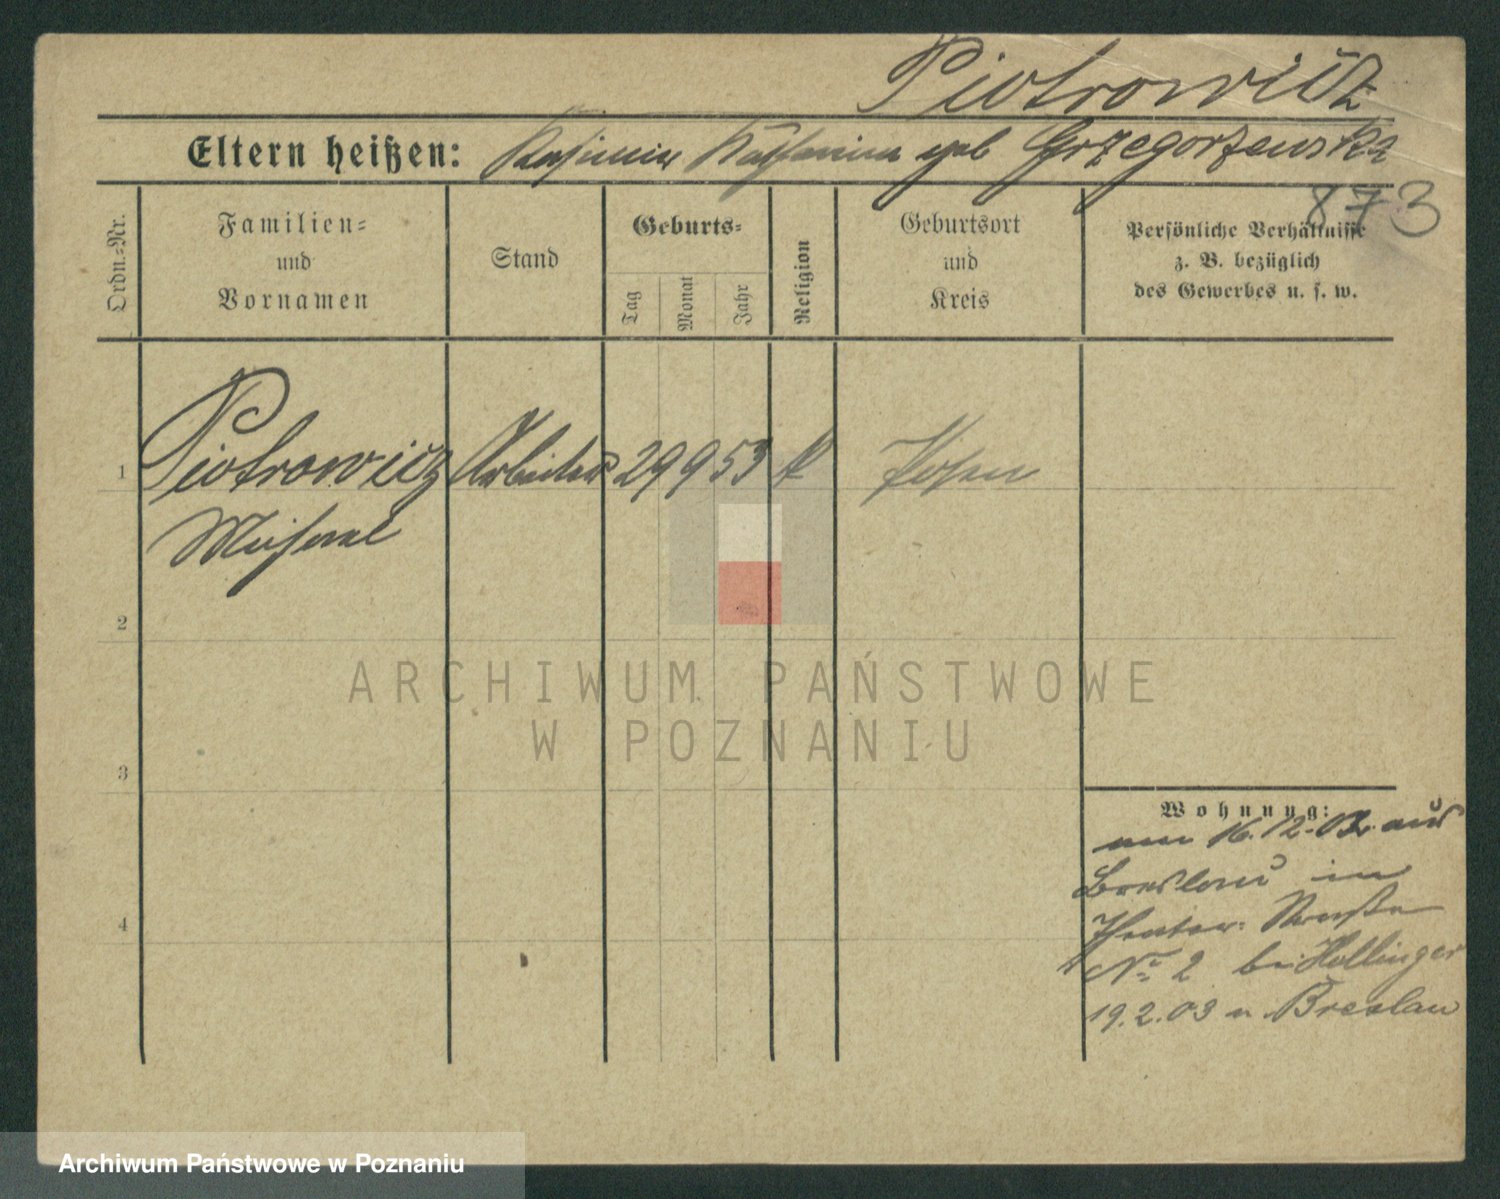 Piotrowicz
Eltern heißen: Kasimir Katharina geb Grzegorzewska
873
Ordn.=Nr.
Familien=
und
Vornamen
Stand
Geburts=
Tag
Monat
Jahr
Religion
Geburtsort
und
Kreis
Persönliche Verhältnisse
z. B. bezüglich
des Gewerbes u. s. w.
1
Piotrowicz Arbeiter 29 9 53 k Posen
Michael
2
ARCHIWUM PAŃSTWOWE
W POZNANIU
3
Wohnung:
16.12.02. aus
Breslau in
Theater-Straße
4
No 2 bei Hollinger
19.2.03 n Breslau
Archiwum Państwowe w Poznaniu